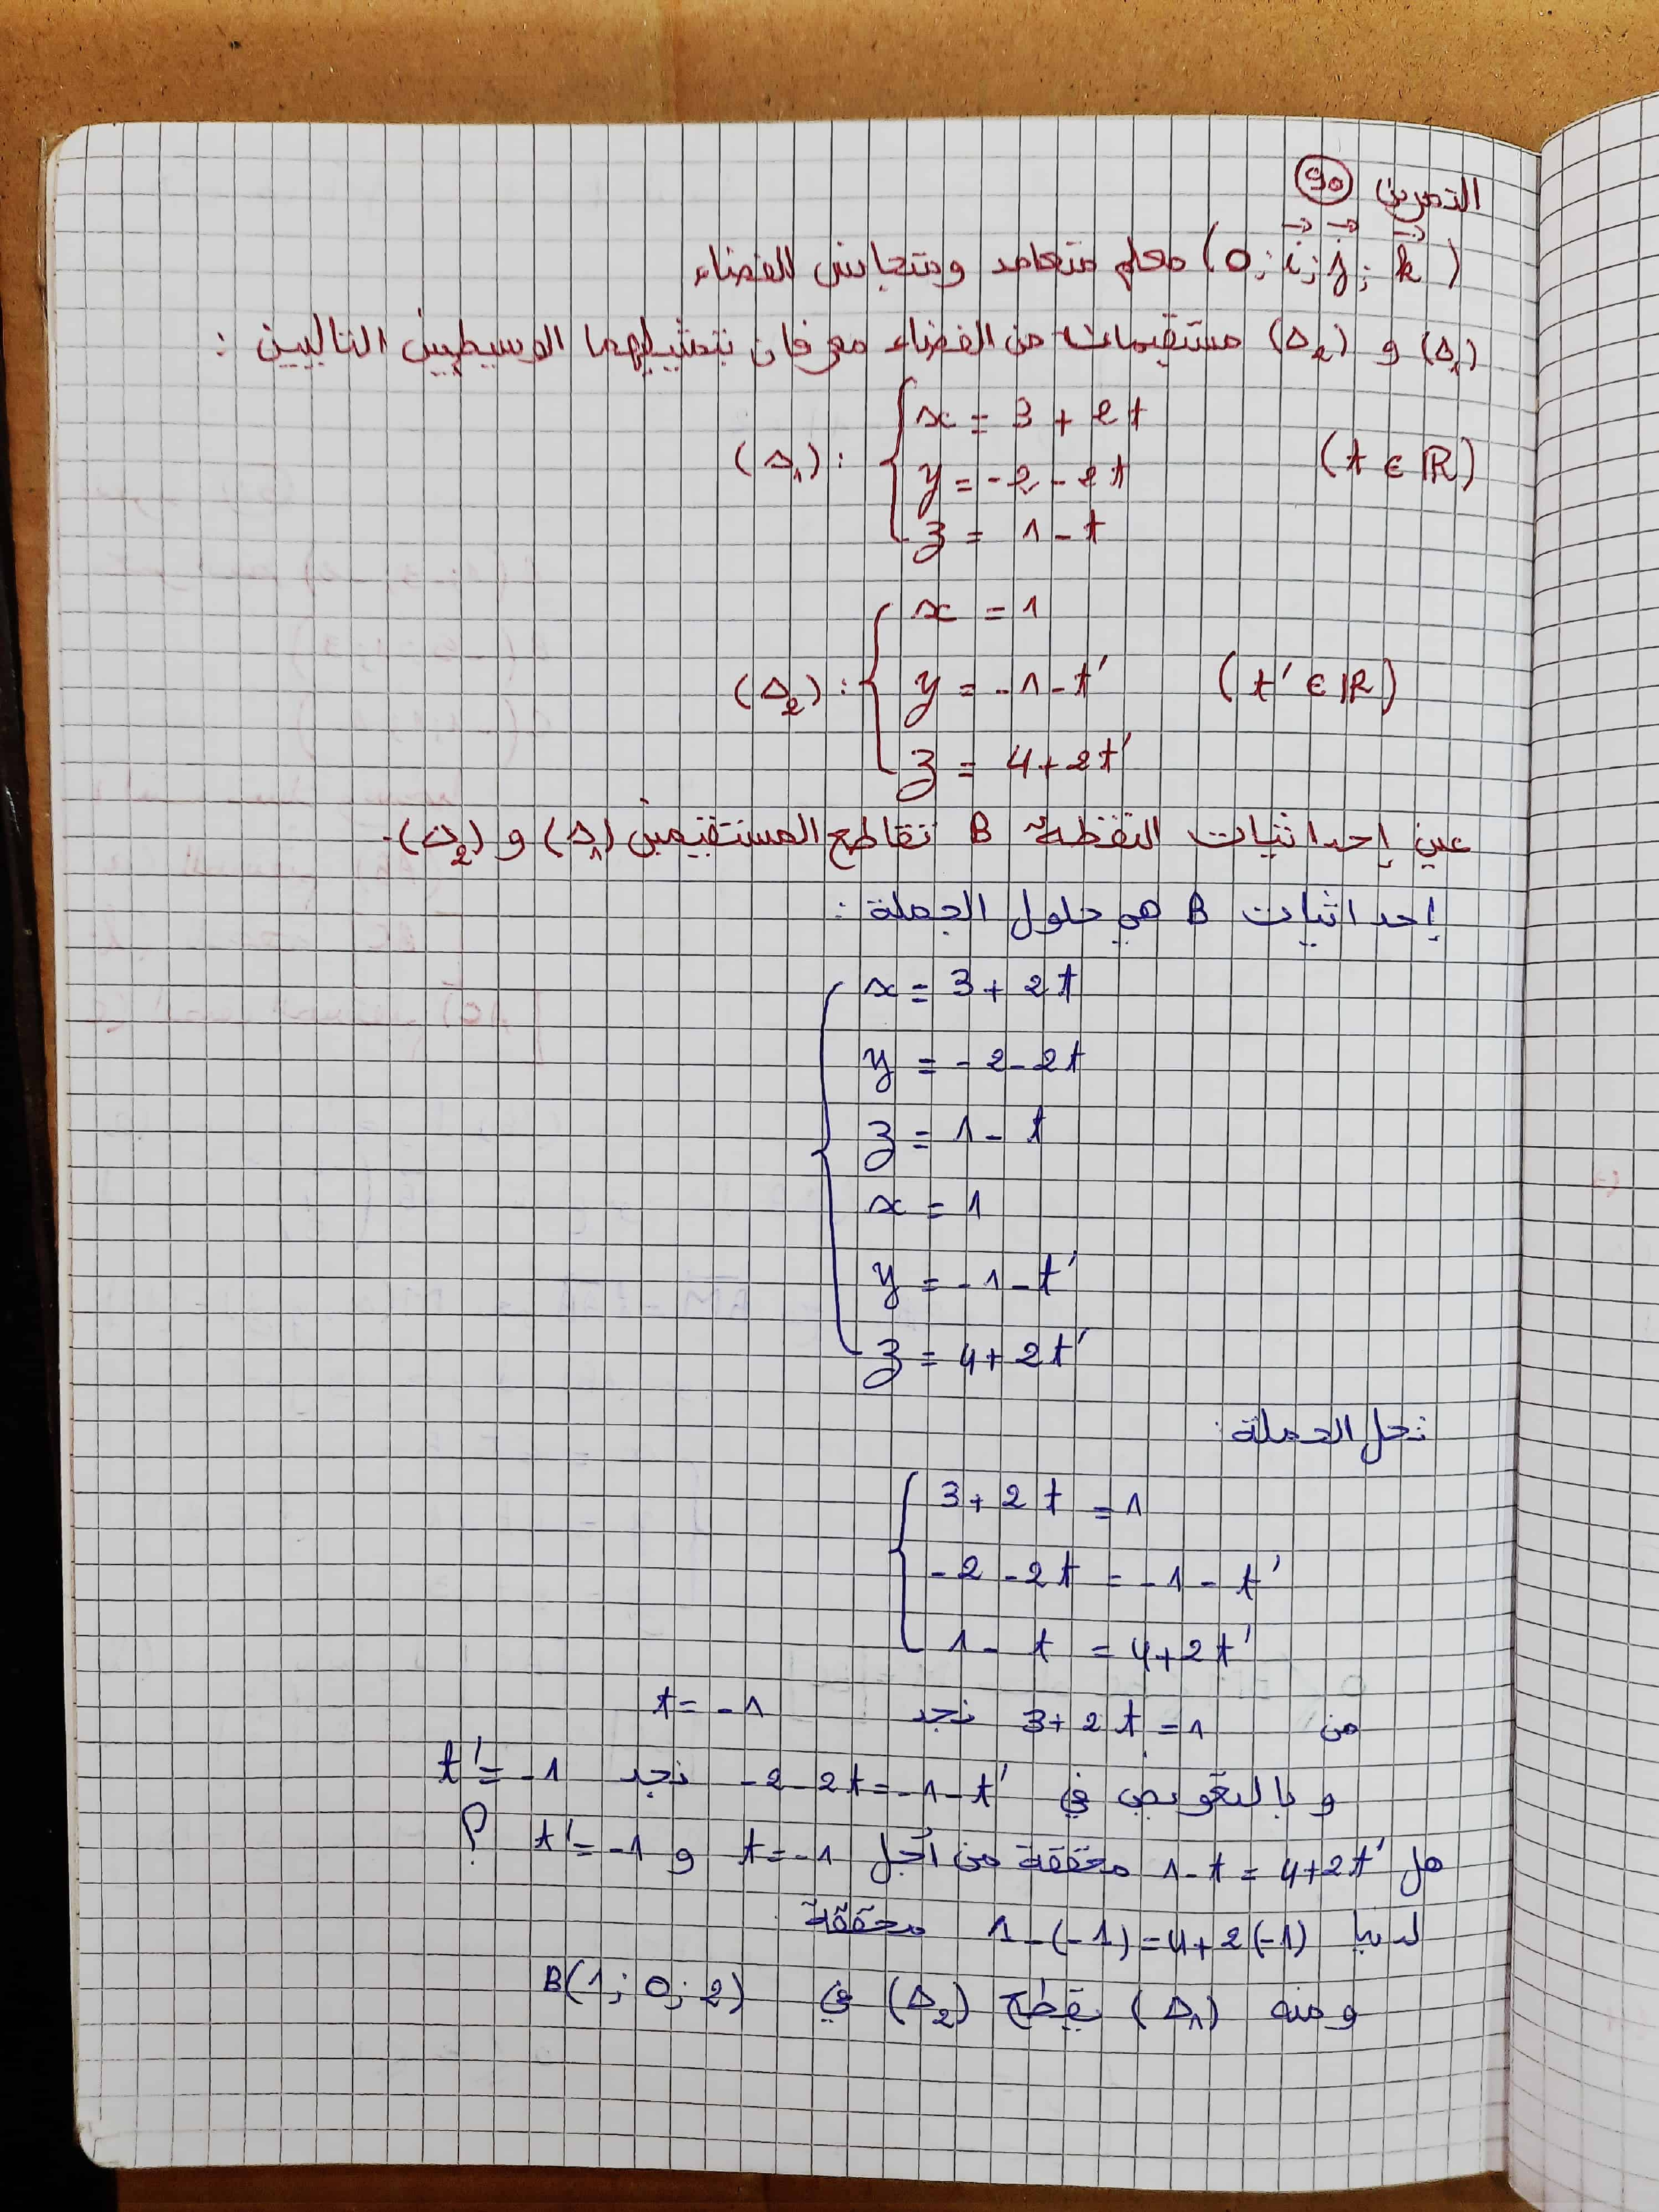 التمرين 90
(O; i⃗; j⃗; k⃗) معلم متعامد ومتجانس للفضاء
(Δ₁) و (Δ₂) مستقيمات من الفضاء معرفان بتمثيلهما الوسيطيين التاليين :
x = 3 + 2t
(Δ₁) : y = -2 - 2t (t ∈ ℝ)
z = 1 - t
x = 1
(Δ₂) : y = -1 - t' (t' ∈ ℝ)
z = 4 + 2t'
عين إحداثيات النقطة B تقاطع المستقيمين (Δ₁) و (Δ₂).
إحداثيات B هي حلول الجملة :
x = 3 + 2t
y = -2 - 2t
z = 1 - t
x = 1
y = -1 - t'
z = 4 + 2t'
نحل الجملة :
3 + 2t = 1
-2 - 2t = -1 - t'
1 - t = 4 + 2t'
من 3 + 2t = 1 نجد t = -1
و بالتعويض في -2 - 2t = -1 - t' نجد t' = -1
هل 1 - t = 4 + 2t' محققة من أجل t = -1 و t' = -1 ؟
لدينا 1 - (-1) = 4 + 2(-1) محققة
ومنه (Δ₁) يقطع (Δ₂) في B(1; 0; 2)